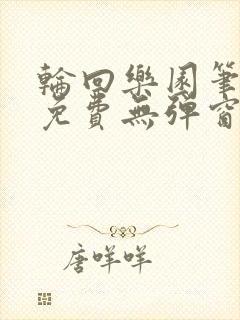 輪回樂園筆
免費無彈窗
唐咩咩